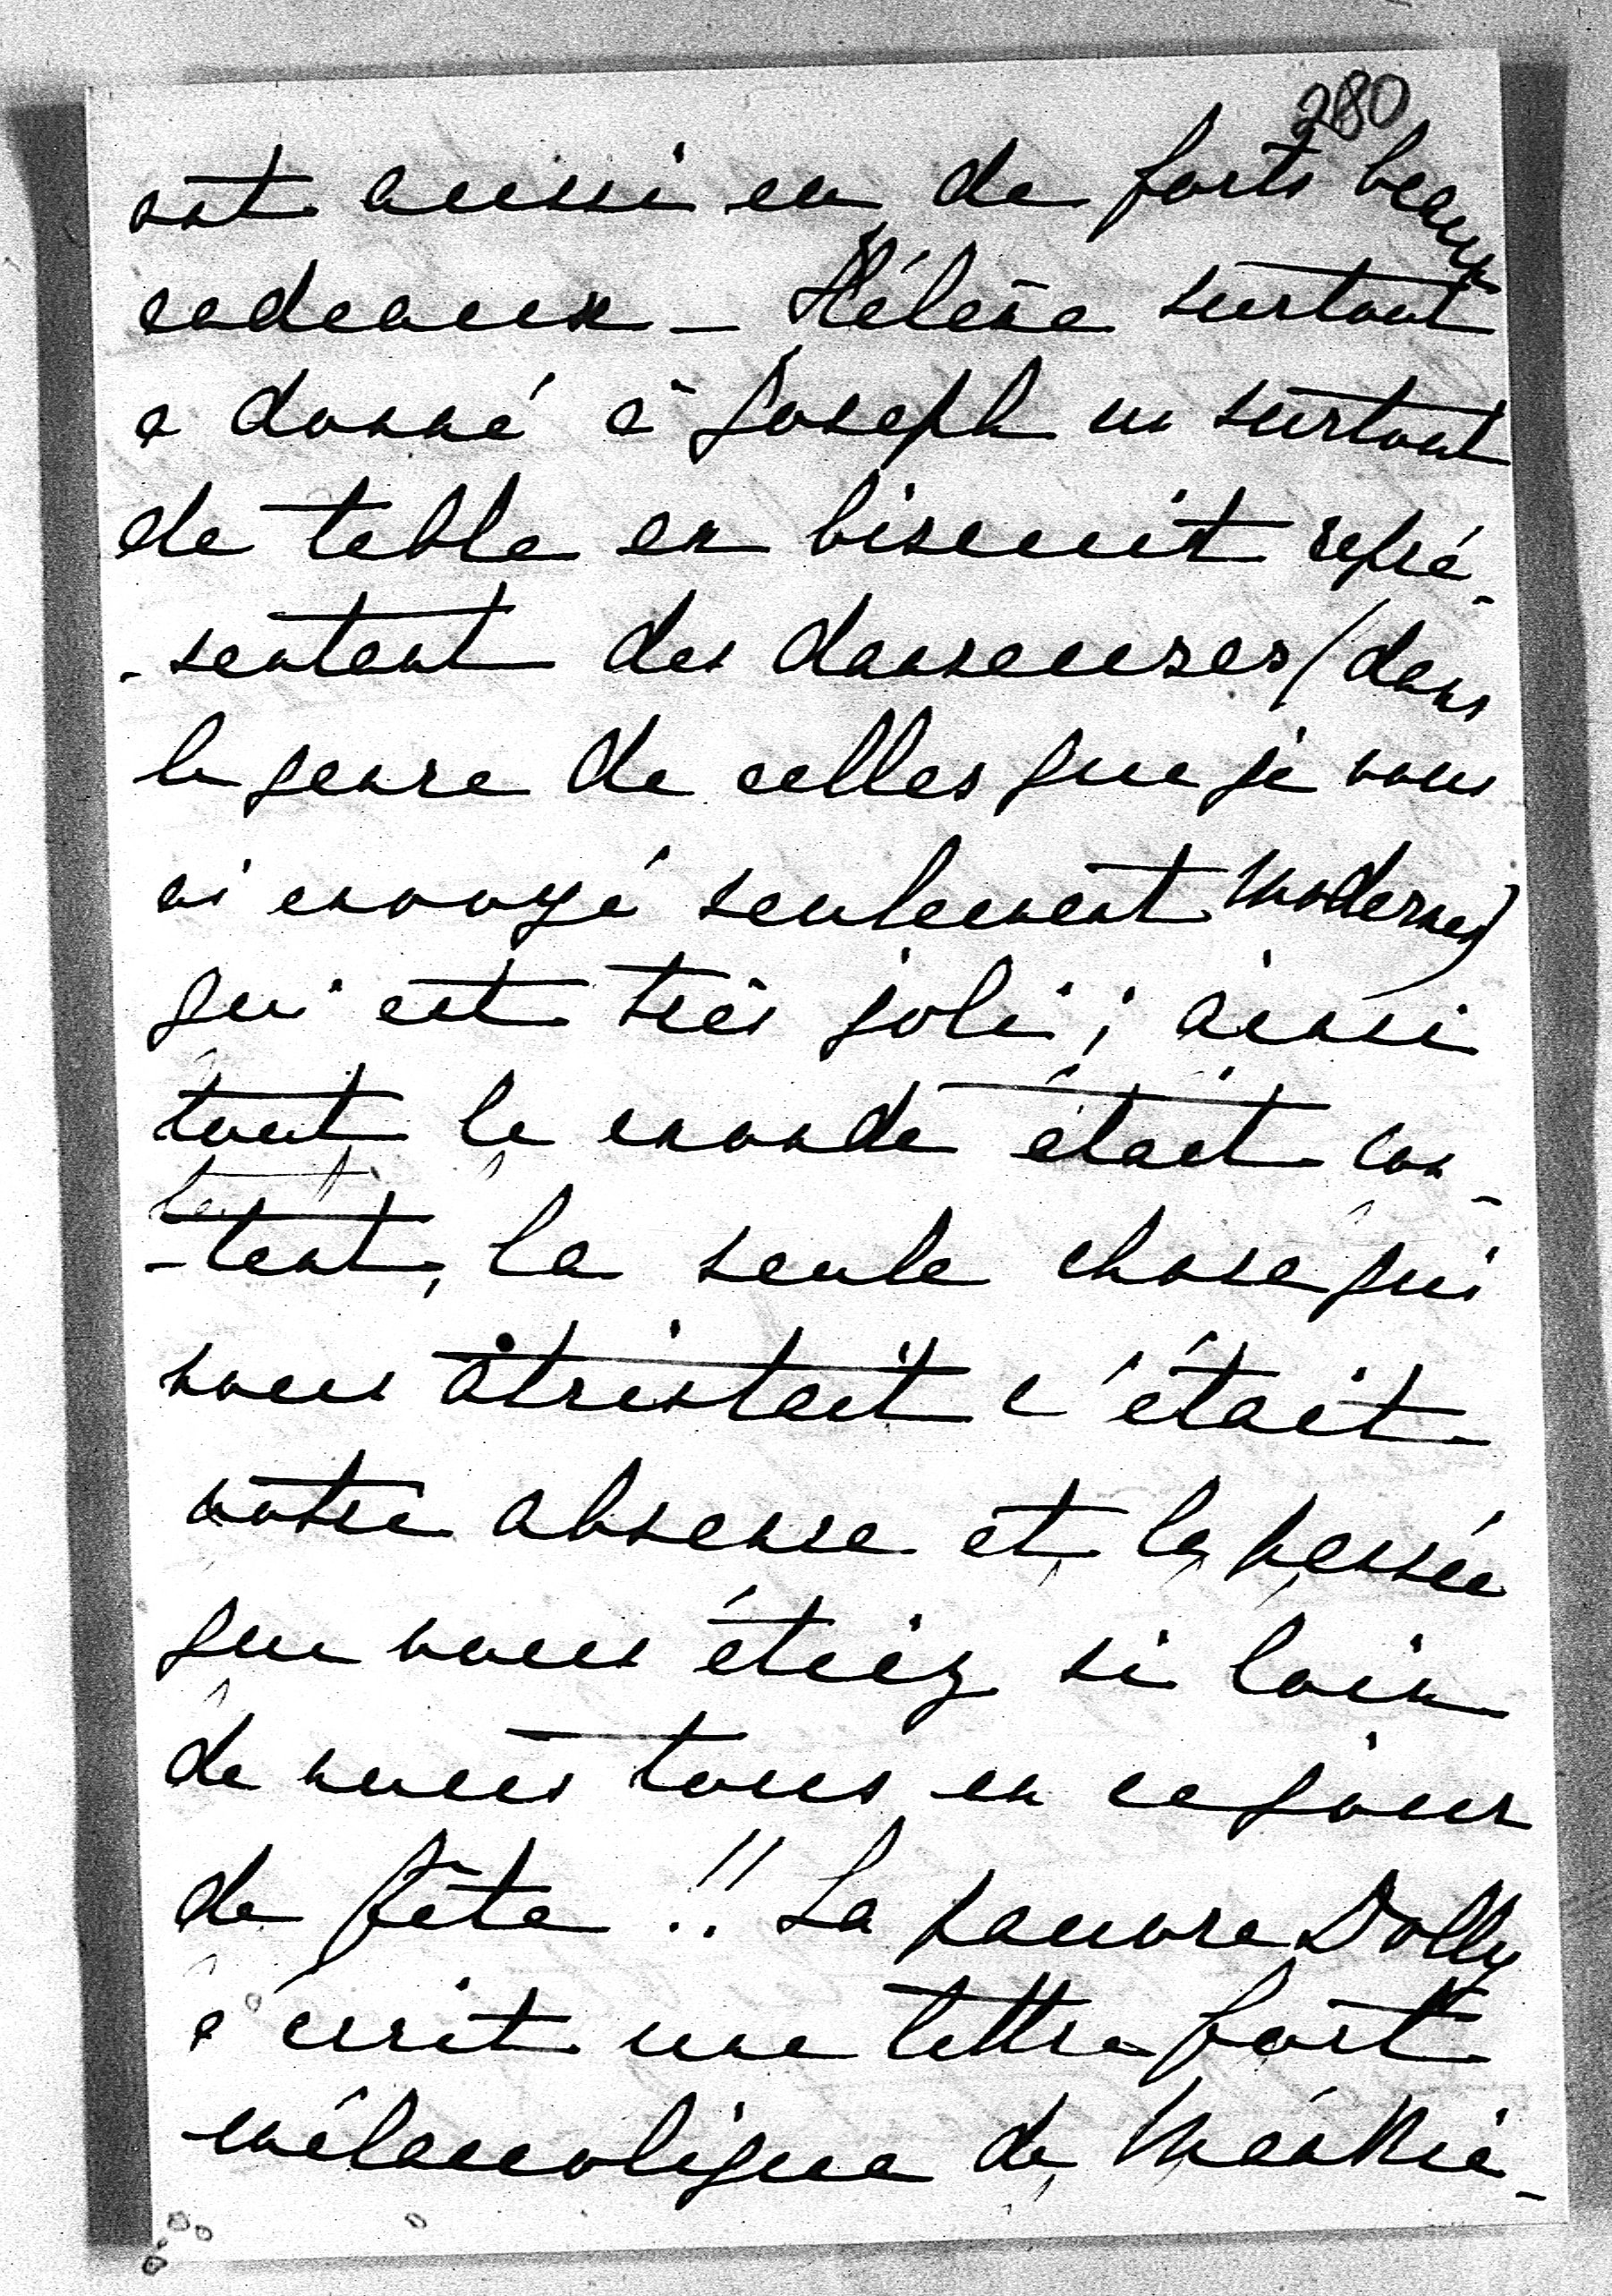 280
ont aussi eu de forts beaux
cadeaux – Hélène surtout
a donné à Joseph un surtout
de table en biscuit repré-
-sentant des danseuses (dans
le genre de celles que je vous
ai envoyé seulement modernes)
qui est très joli ; ainsi
tout le monde était con-
-tent, la seule chose qui
nous atristait c'était
votre absence et la pensée
que vous étiez si loin
de nous tous en ce jour
de fête !! La pauvre Dolly
a écrit une lettre fort
mélancolique de